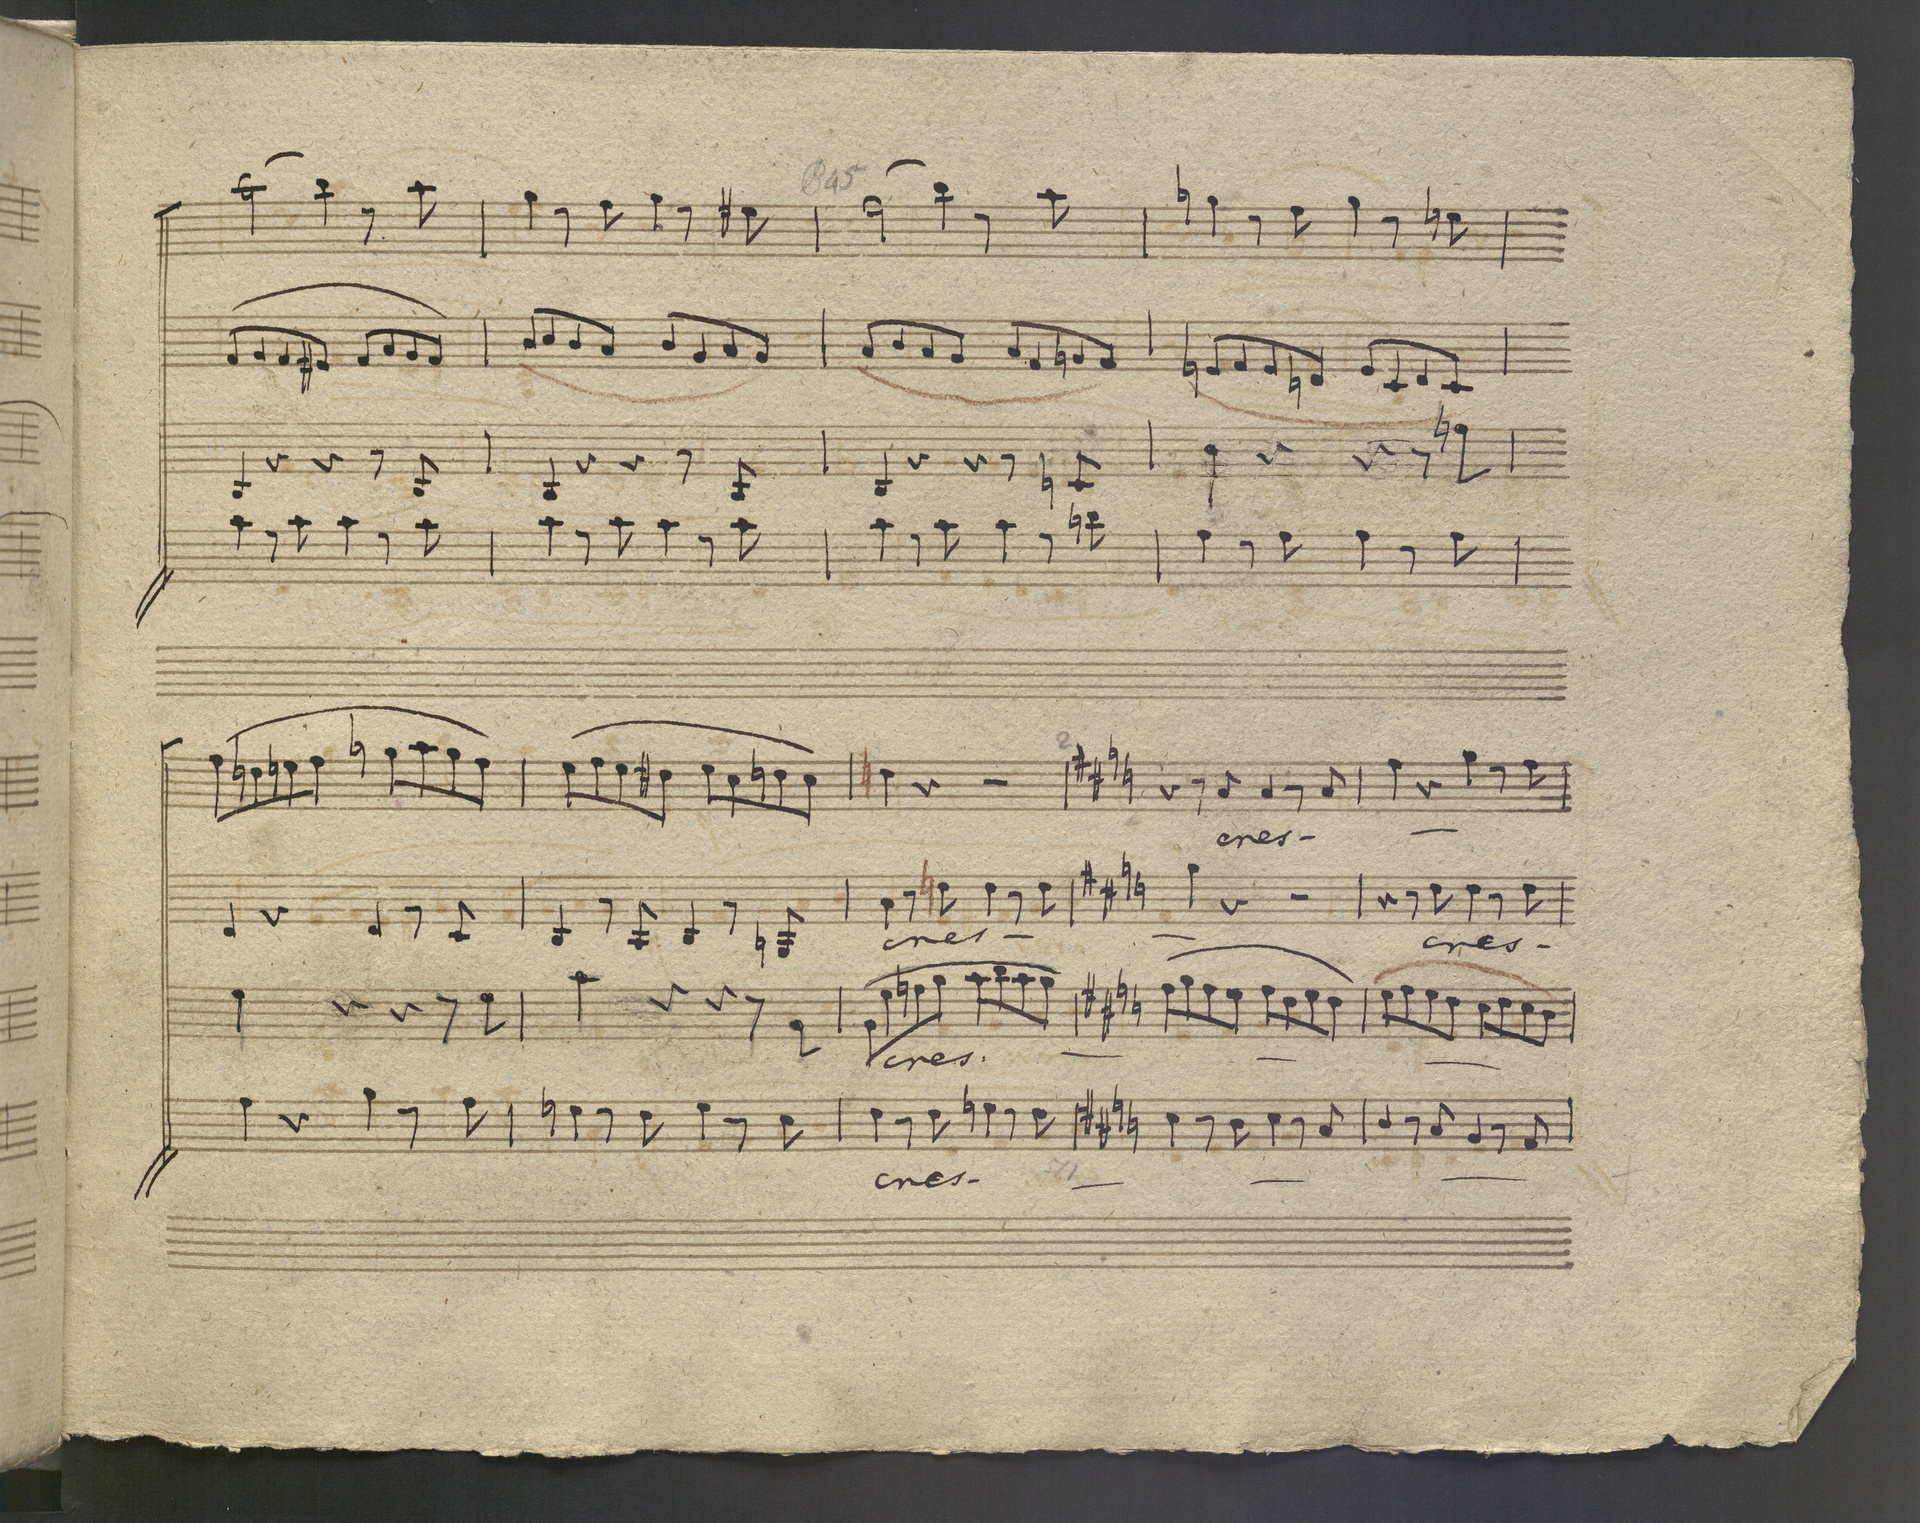 B45
2
cres-
cres-
cres-
cres.
cres-